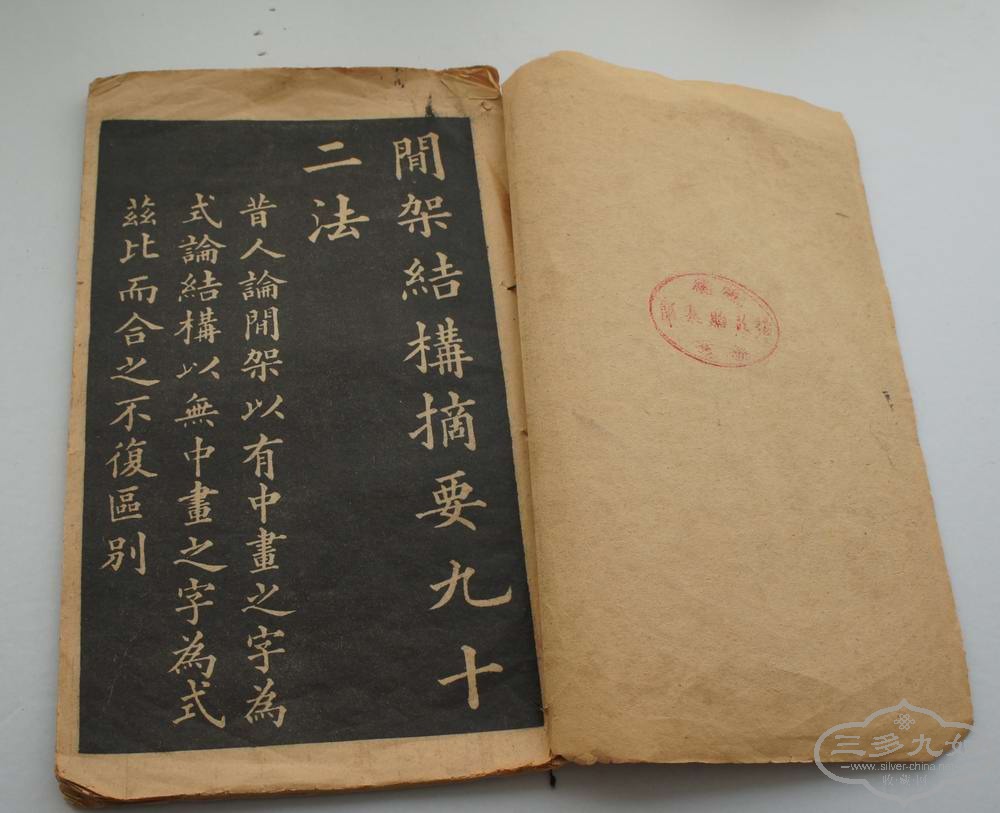 間架結構摘要九十
二法
昔人論間架以有中畫之字為
式論結構以無中畫之字為式
茲比而合之不復區別
三多九如
www.silver-china.net
收藏网